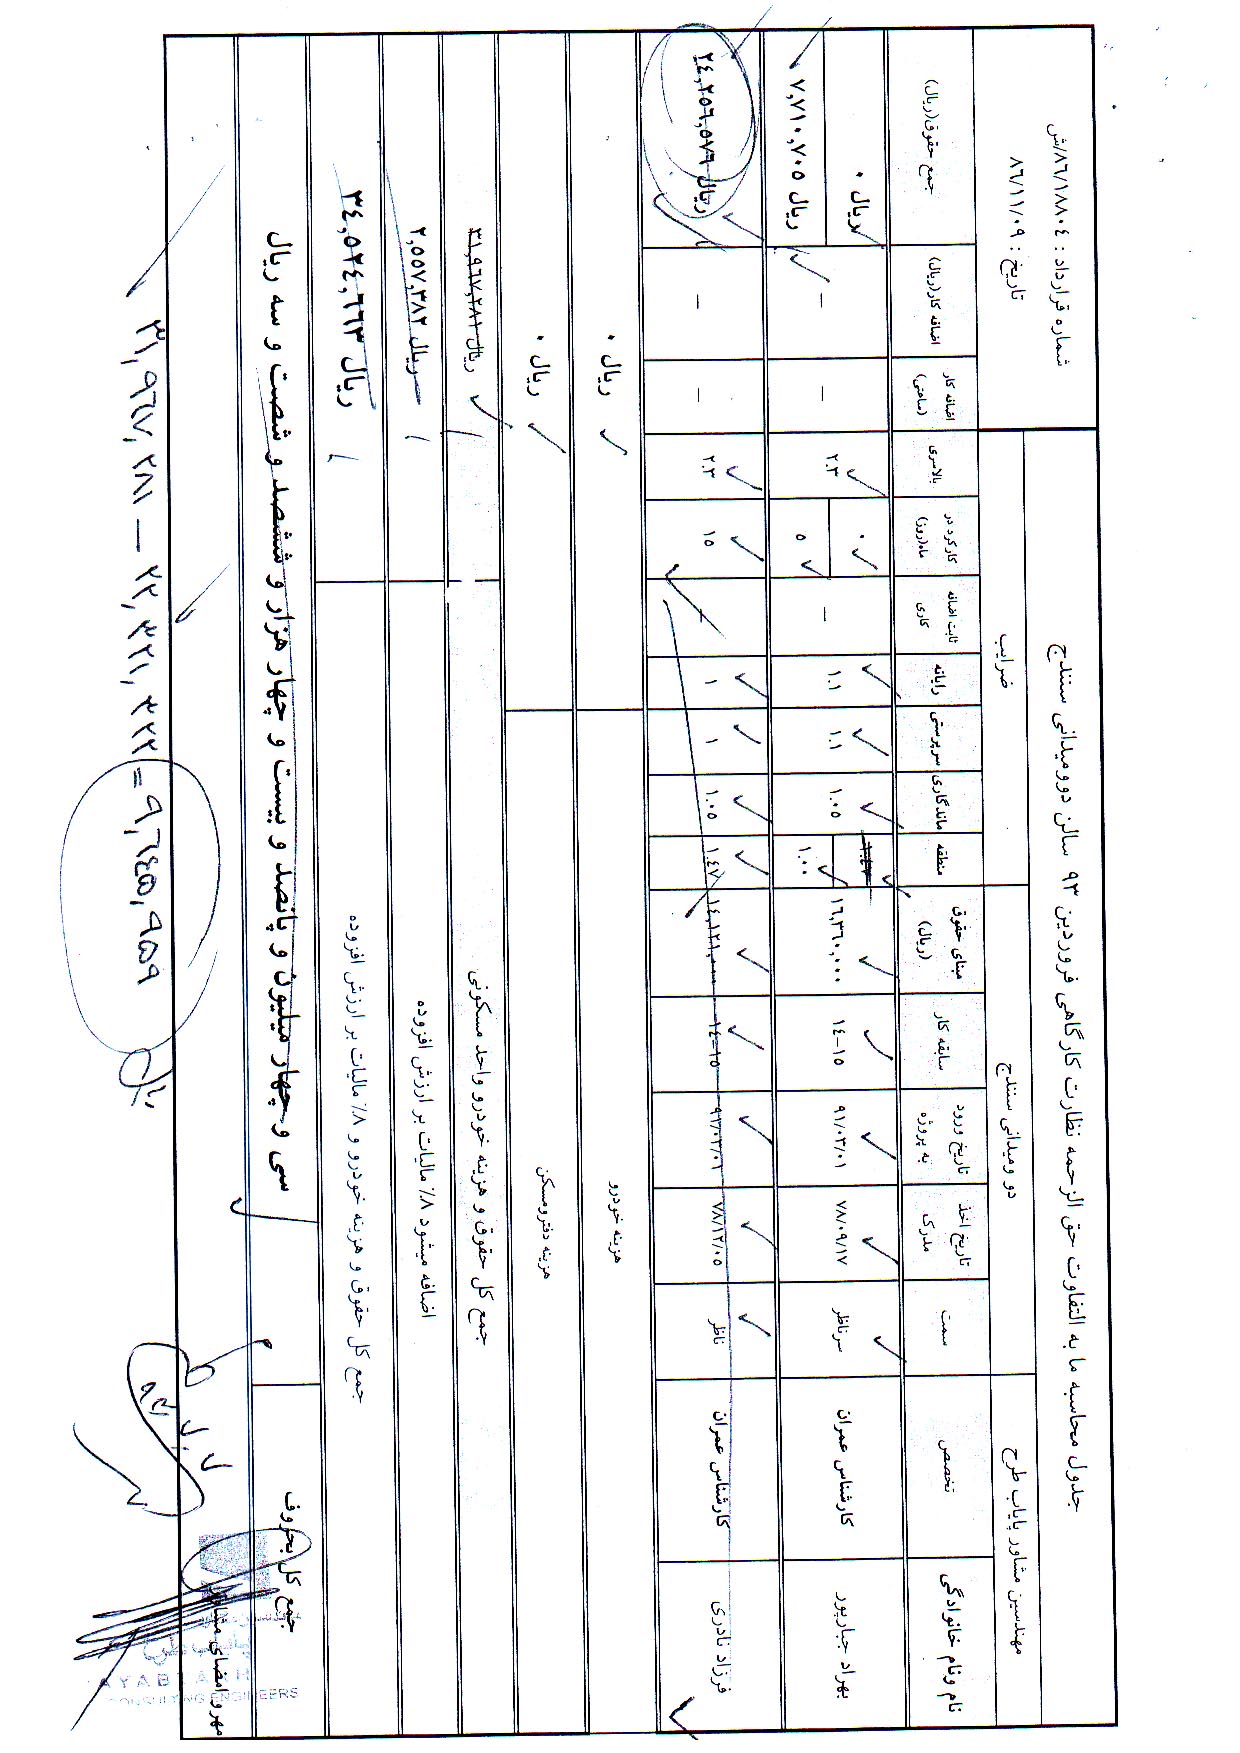 جدول محاسبه ما به التفاوت حق الزحمه نظارت کارگاهی فروردین ۹۳ سالن دوومیدانی سنندج
شماره قرارداد : ۸۶/۱۸۸۰۴/ش
تاریخ : ۸۶/۱۱/۰۹
مهندسین مشاور پایاب طرح
دو ومیدانی سنندج
ضرایب
نام ونام خانوادگی
تخصص
سمت
تاریخ اخذ مدرک
تاریخ ورود به پروژه
سابقه کار
مبنای حقوق (ریال)
منطقه
ماندگاری
سرپرستی
رایانه
ثابت اضافه کاری
کارکرد در ماه(روز)
بالاسری
اضافه کار (ساعتی)
اضافه کار(ریال)
جمع حقوق(ریال)
بهراد جبارپور
کارشناس عمران
سرناظر
۷۸/۰۹/۱۷
۹۱/۰۳/۰۱
۱۴-۱۵
۱۶,۳۶۰,۰۰۰
۱.۴۷
۱.۰۰
۱.۰۵
۱.۱
۱.۱
–
۰
۵
۲.۳
–
–
ریال ۰
ریال ۷,۷۱۰,۷۰۵
فرزاد نادری
کارشناس عمران
ناظر
۷۸/۱۲/۰۵
۹۲/۰۲/۰۱
۱۴-۱۵
۱۴,۱۲۱,۰۰۰
۱.۴۷
۱.۰۵
۱
۱
–
۱۵
۲.۳
–
–
ریال ۲۴,۲۵۶,۵۷۶
هزینه خودرو
ریال ۰
هزینه دفترومسکن
ریال ۰
جمع کل حقوق و هزینه خودرو واحد مسکونی
ریال ۳۱,۹۶۷,۲۸۱
اضافه میشود ۸٪ مالیات بر ارزش افزوده
ریال ۲,۵۵۷,۳۸۲
جمع کل حقوق و هزینه خودرو و ۸٪ مالیات بر ارزش افزوده
ریال ۳۴,۵۲۴,۶۶۳
جمع کل بحروف
سی و چهار میلیون و پانصد و بیست و چهار هزار و ششصد و شصت و سه ریال
مهر و امضای مشاور
۳۱,۹۶۷,۲۸۱ – ۲۲,۳۲۱,۳۲۲ = ۹,۶۴۵,۹۵۹
پایاب طرح
AYAB TARH
CONSULTING ENGINEERS